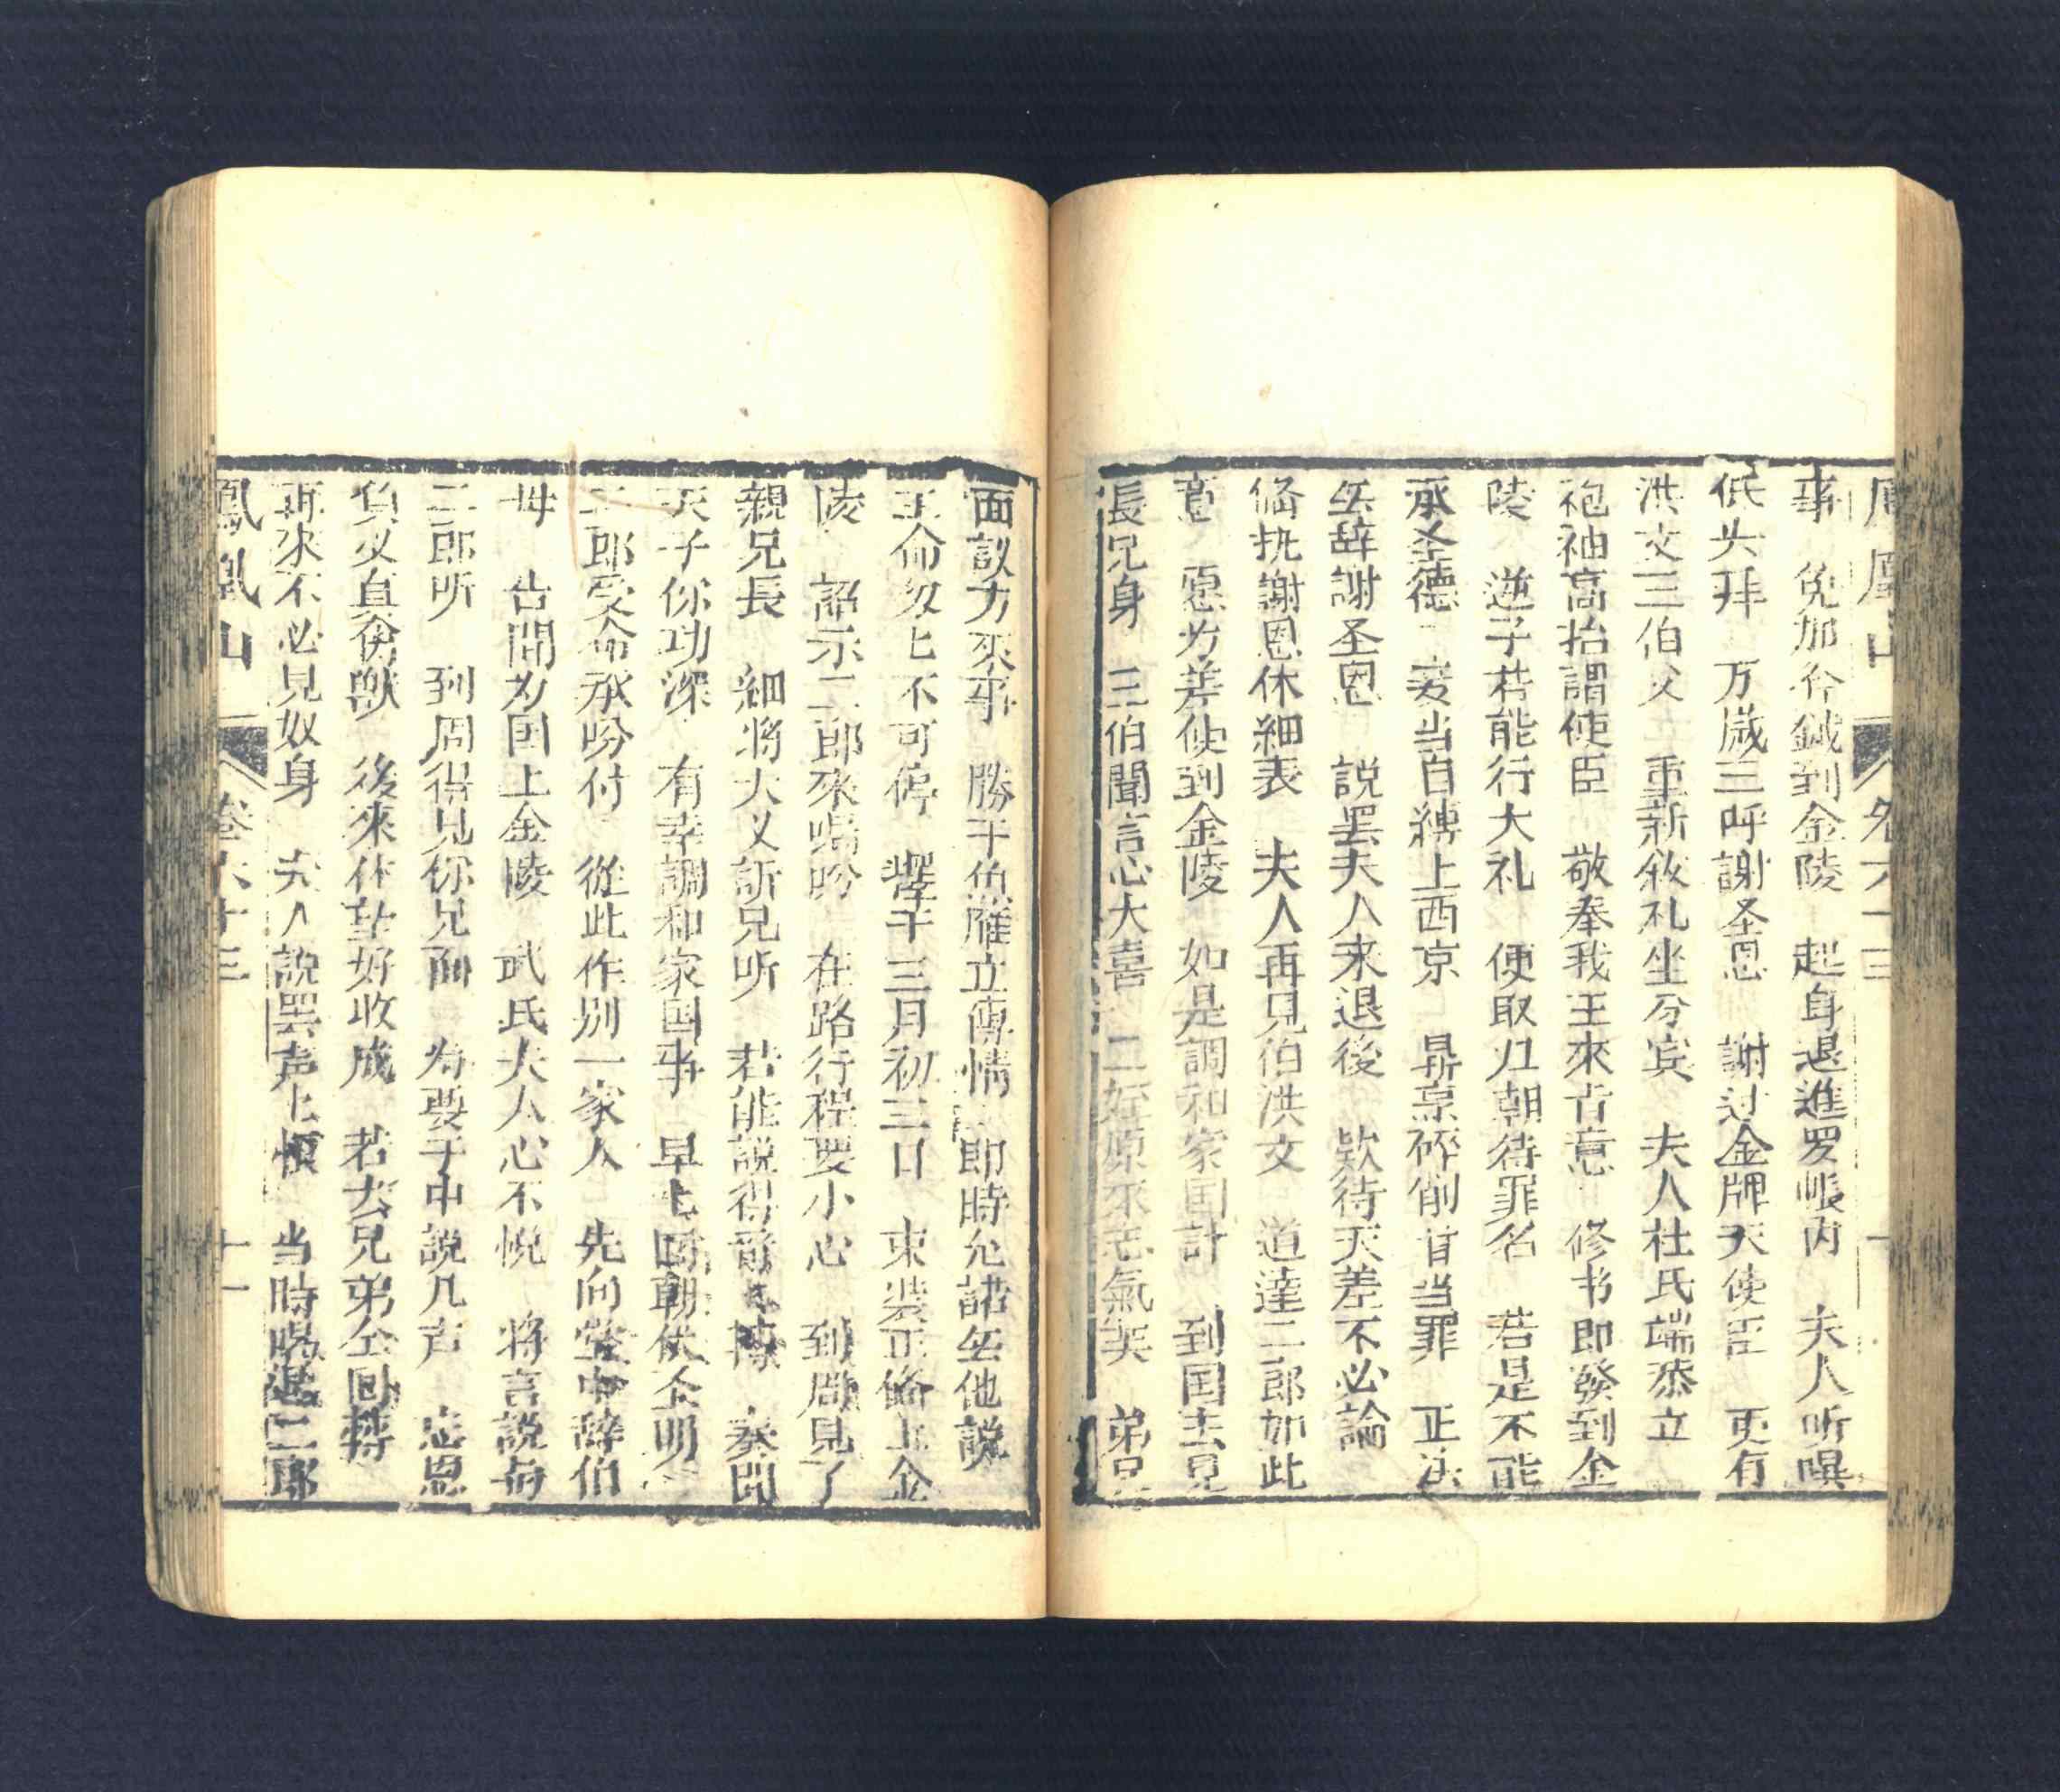 鳳凰山 卷六十三
事 免加斧鉞到金陵 起身退進罗帳內 夫人听
低头拜 万歲三呼謝圣恩 謝过金牌天使臣 更有
洪文三伯父 重新敘礼坐分宾 夫人杜氏端恭立
袍袖高抬謂使臣 敬奉我王來旨意 修书即發到金
陵 逆子若能行大礼 便取入朝待罪名 若是不能
承圣德 妾当自縛上西京 碎剮首当罪 正法
辞謝圣恩 説罢夫人来退後 欵待天差不必論
俻执謝恩休細表 夫人再見伯洪文 道達二郎如此
意 差使到金陵 如是調和家国計 到国去見
長兄身 三伯聞言心大喜 二姪原來志氣英 弟兄
面談方來事 勝于魚雁立傳情 即時允諾 他説
王命匆匕不可停 擇于三月初三日 束裝正俻上金
陵 詔示二郎來囑吩 在路行程要小心 到周見了
親兄長 細將大义訴兄听 若能説得 奏聞
天子你功深 有幸調和家国事 早匕回朝伏圣明
二郎受命承吩付 從此作别一家人 先向堂中辞伯
母 告間为国上金陵 武氏夫人心不悦 将言説与
二郎听 到周得見你兄面 为要于中説几声 忘恩
負义直禽獣 後來休望好收成 若去兄弟仝回轉
再來不必見奴身 夫人説罢声匕恨 当時喝退二郎
鳳凰山 卷六十三 十一